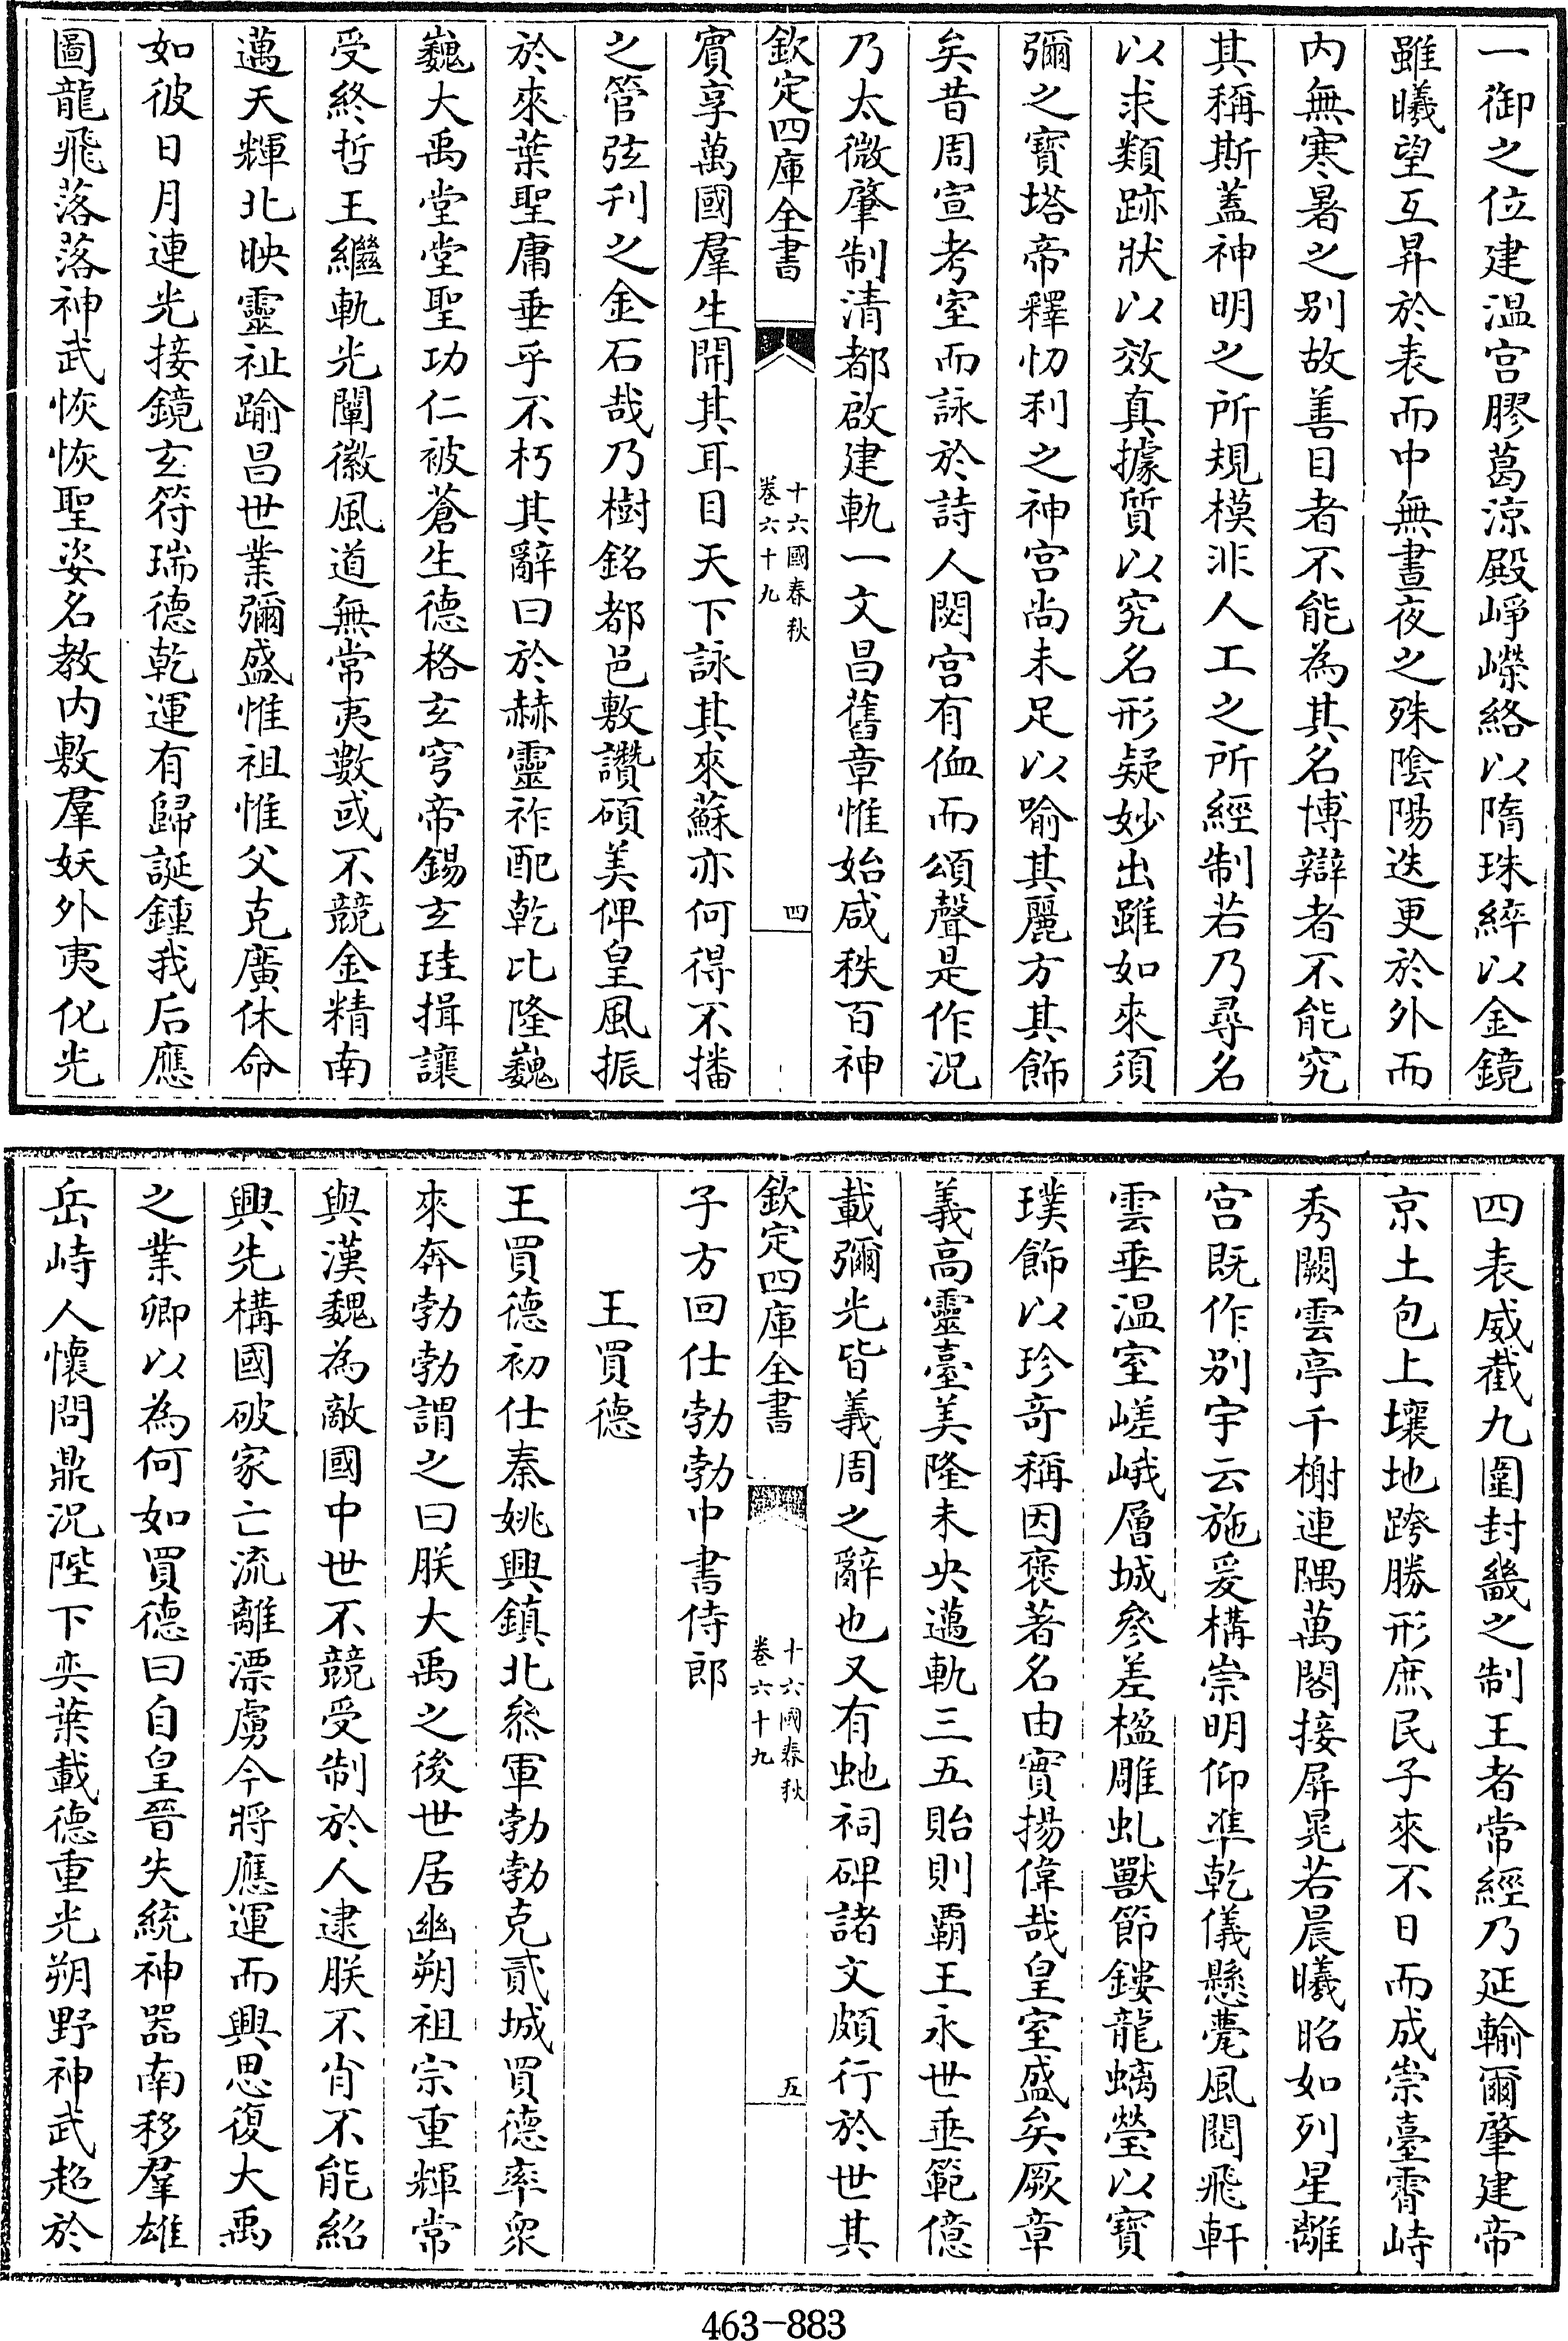 一御之位建温宫膠葛涼殿崢嶸絡以隋珠綷以金鏡
雖曦望互昇於表而中無晝夜之殊陰陽迭更於外而
内無寒暑之别故善目者不能為其名博辯者不能究
其稱斯蓋神明之所規模非人工之所經制若乃尋名
以求類跡狀以效真據質以究名形疑妙出雖如來須
彌之寶塔帝釋忉利之神宫尚未足以喻其麗方其飾
矣昔周宣考室而詠於詩人閟宫有侐而頌聲是作況
乃太微肇制清都啟建軌一文昌舊章惟始咸秩百神
欽定四庫全書
十六國春秋
卷六十九
四
賓享萬國羣生開其耳目天下詠其來蘇亦何得不播
之管弦刊之金石哉乃樹銘都邑敷讚碩美俾皇風振
於來葉聖庸垂乎不朽其辭曰於赫靈祚配乾比隆巍
巍大禹堂堂聖功仁被蒼生德格玄穹帝錫玄珪揖讓
受終哲王繼軌光闡徽風道無常夷數或不競金精南
邁天輝北映靈祉踰昌世業彌盛惟祖惟父克廣休命
如彼日月連光接鏡玄符瑞德乾運有歸誕鍾我后應
圖龍飛落落神武恢恢聖姿名教内敷羣妖外夷化光
四表威截九圍封畿之制王者常經乃延輸爾肇建帝
京土包上壤地跨勝形庶民子來不日而成崇臺霄峙
秀闕雲亭千榭連隅萬閣接屏晃若晨曦昭如列星離
宫既作别宇云施爰構崇明仰準乾儀懸甍風閱飛軒
雲垂温室嵯峨層城參差楹雕虬獸節鏤龍螭瑩以寶
璞飾以珍奇稱因褒著名由實揚偉哉皇室盛矣厥章
義高靈臺美隆未央邁軌三五貽則霸王永世垂範億
載彌光皆義周之辭也又有虵祠碑諸文頗行於世其
欽定四庫全書
十六國春秋
卷六十九
五
子方回仕勃勃中書侍郎
王買德
王買德初仕秦姚興鎮北叅軍勃勃克貳城買德率衆
來奔勃勃謂之曰朕大禹之後世居幽朔祖宗重輝常
與漢魏為敵國中世不競受制於人逮朕不肖不能紹
興先構國破家亡流離漂虜今將應運而興思復大禹
之業卿以為何如買德曰自皇晉失統神器南移羣雄
岳峙人懷問鼎況陛下奕葉載德重光朔野神武超於
463-883